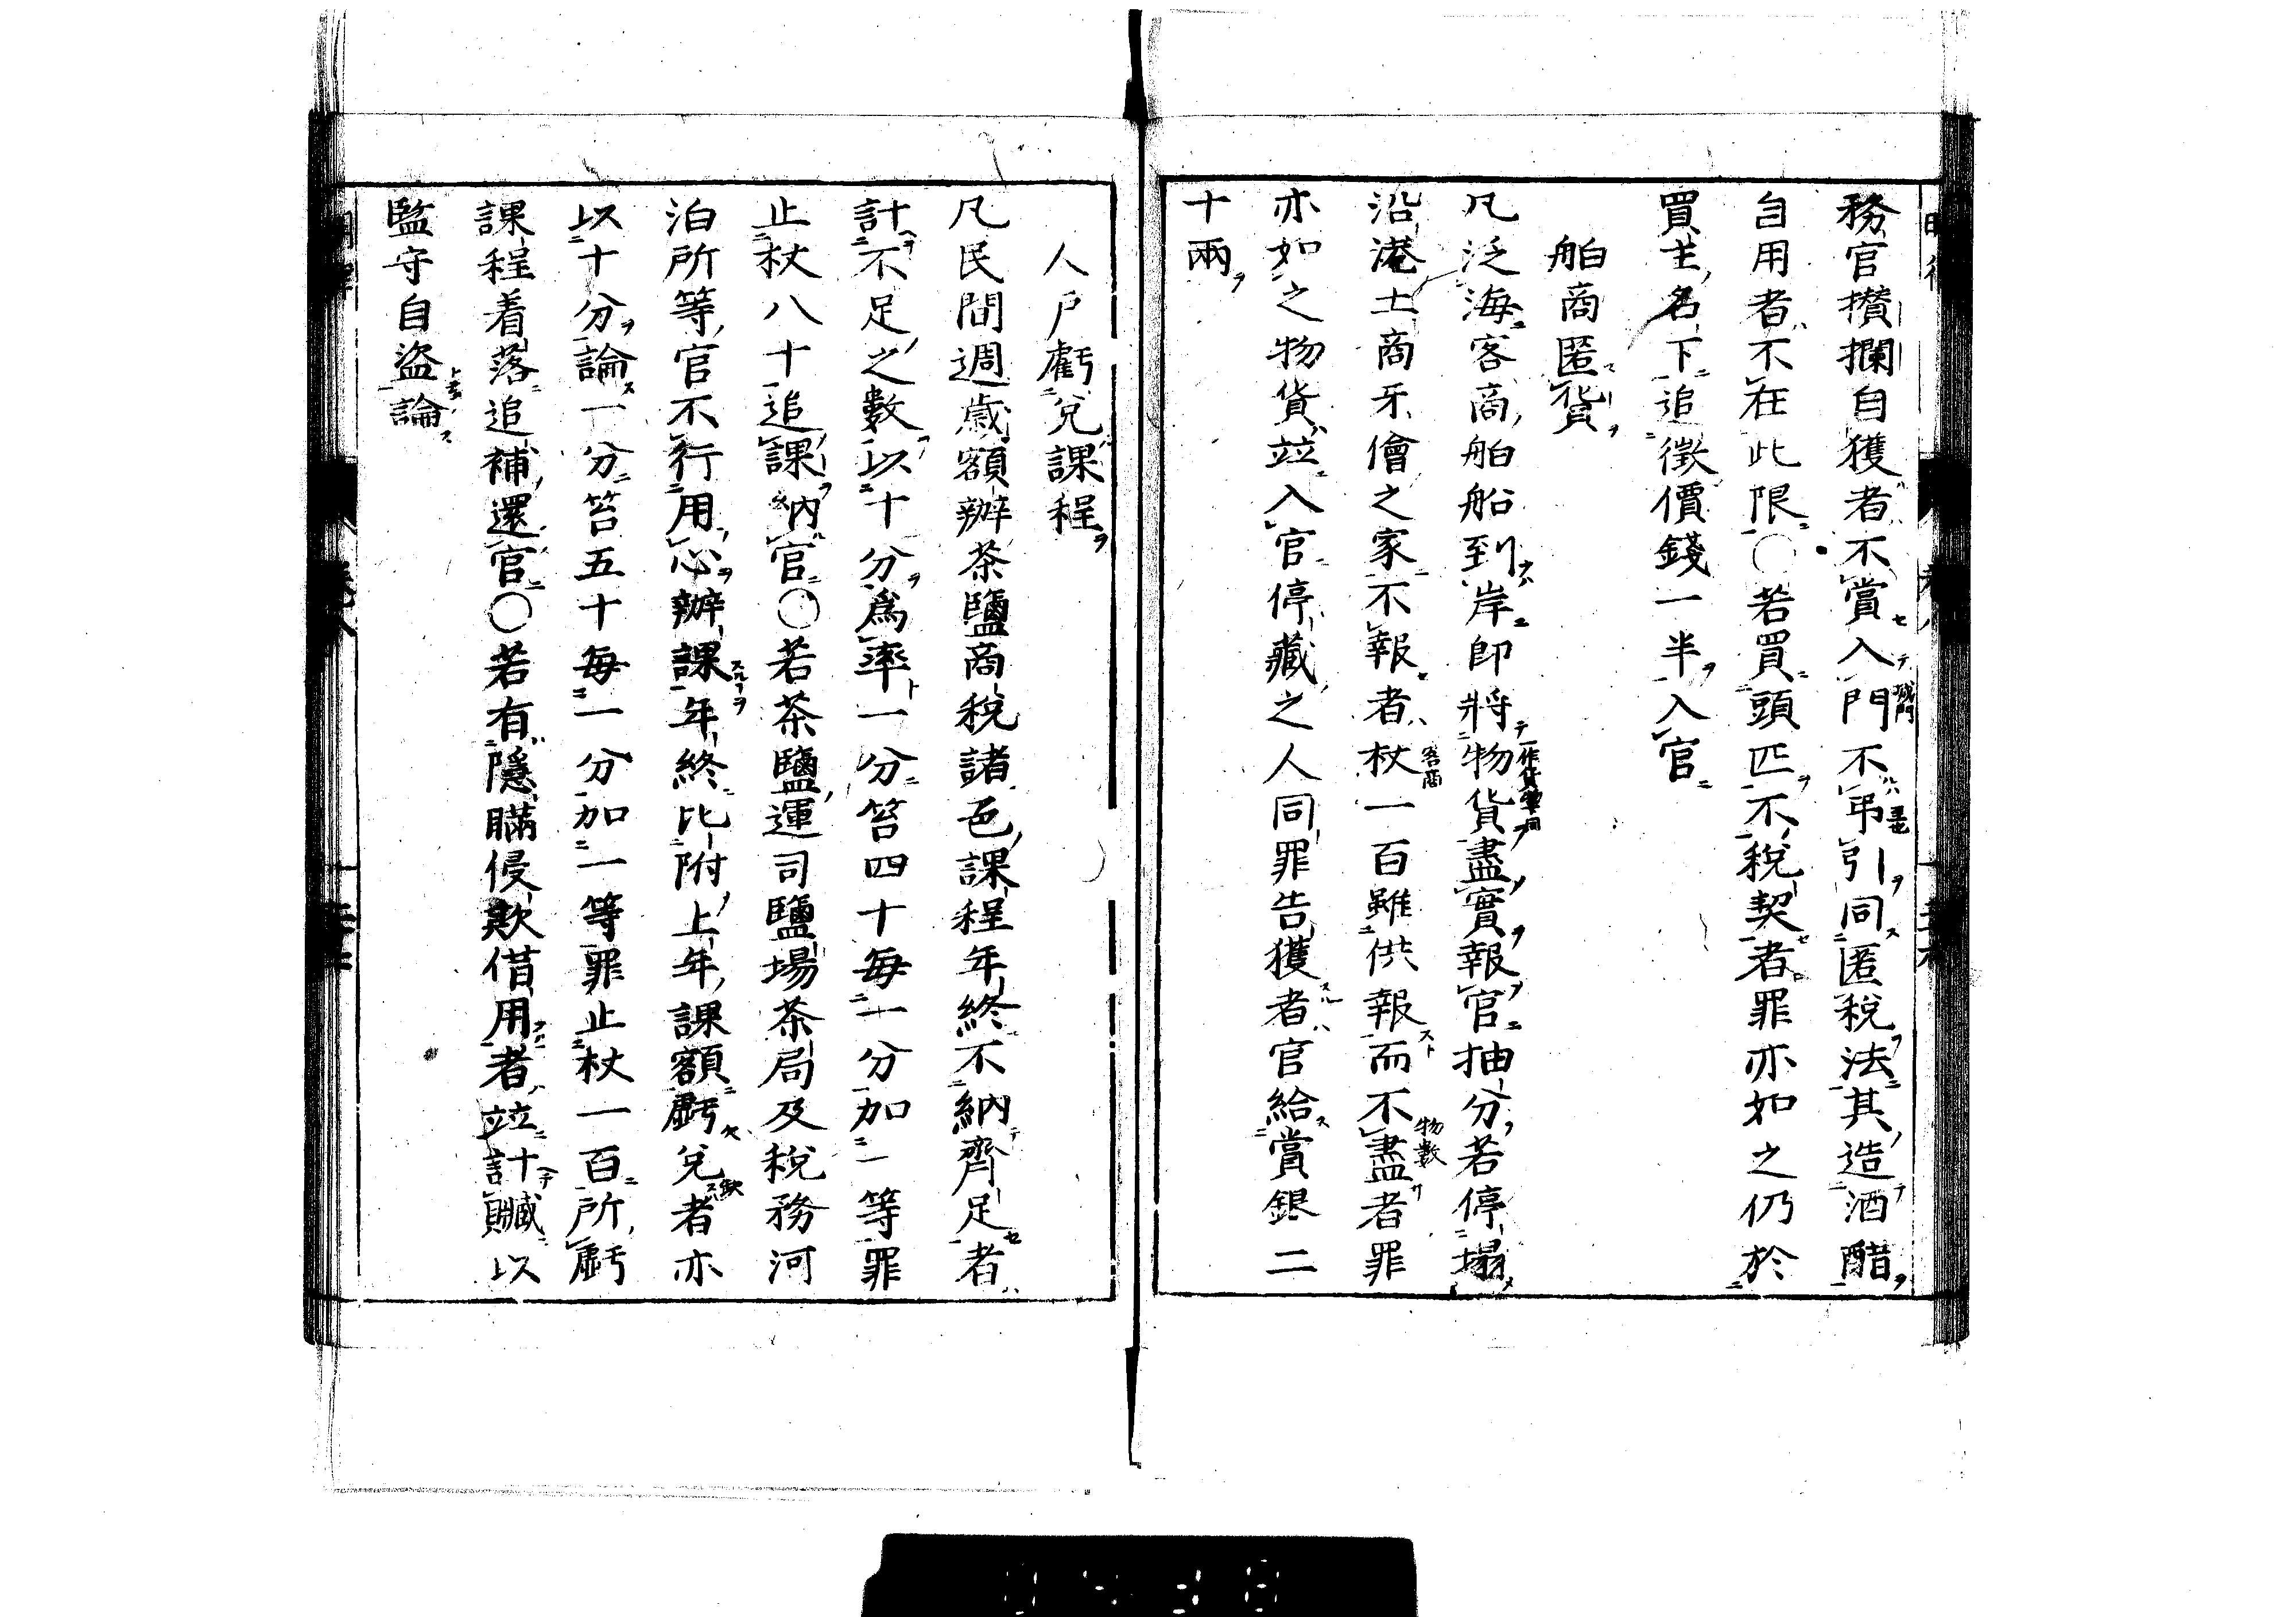 務官攅攔自獲者不賞入門不弔引同匿稅法其造酒醋
自用者不在此限○若買頭匹不稅契者罪亦如之仍於
買主名下追徵價錢一半入官
舶商匿貨
凡泛海客商舶船到岸即將物貨盡實報官抽分若停塌
沿港土商牙儈之家不報者杖一百雖供報而不盡者罪
亦如之物貨竝入官停藏之人同罪告獲者官給賞銀二
十兩
人戶虧兌課程
凡民間週歲額辦茶鹽商稅諸色課程年終不納齊足者
計不足之數以十分爲率一分笞四十每一分加一等罪
止杖八十追課納官○若茶鹽運司鹽場茶局及稅務河
泊所等官不行用心辦課年終比附上年課額虧兌者亦
以十分論一分笞五十每一分加一等罪止杖一百所虧
課程着落追補還官○若有隱瞞侵欺借用者竝計贓以
監守自盜論